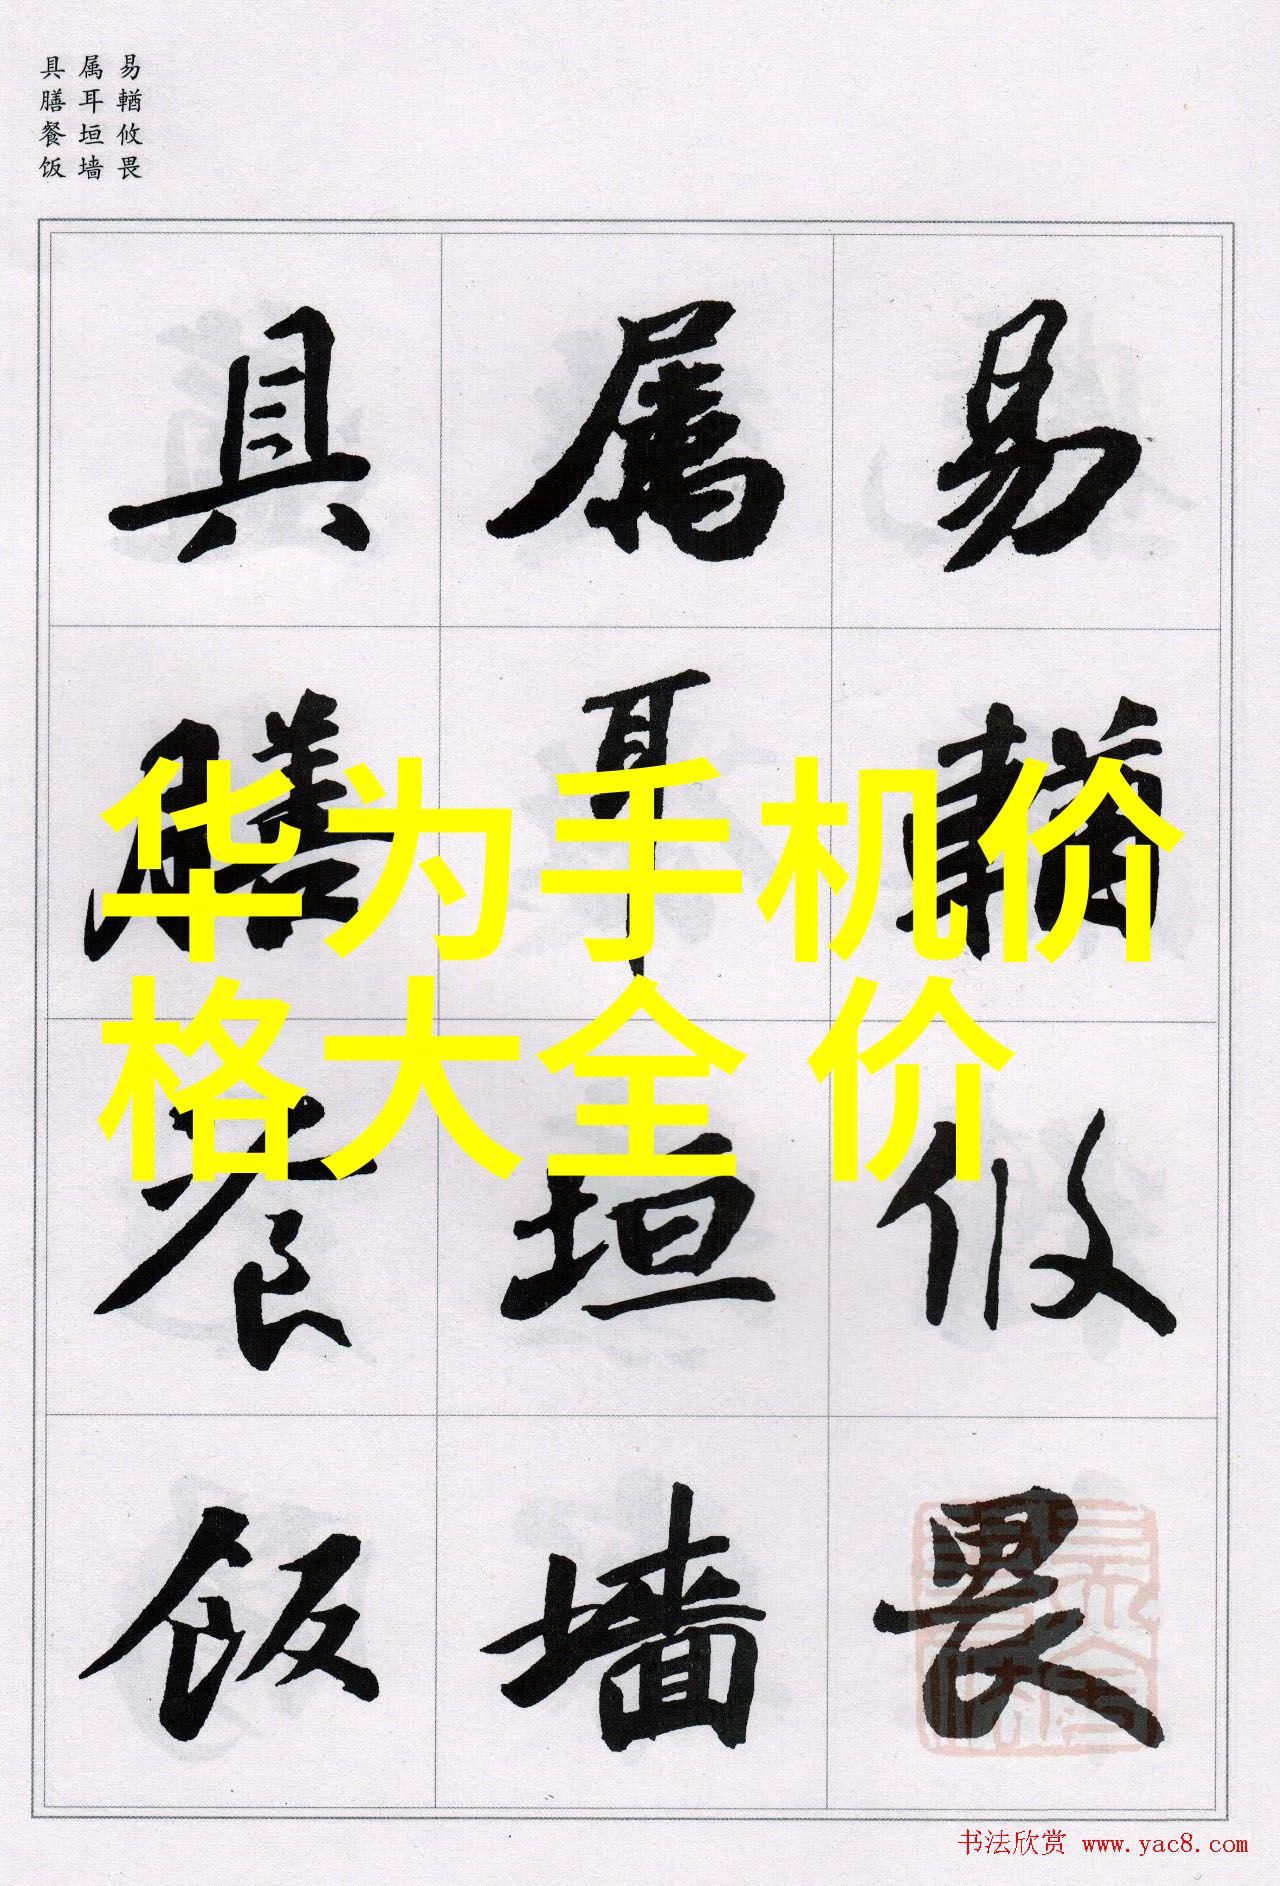 易輶攸畏
属耳垣墙
具膳餐饭
易輶攸畏
属耳垣墙
具膳餐饭
华为手机价
格大全 价
书法欣赏 www.yac8.com